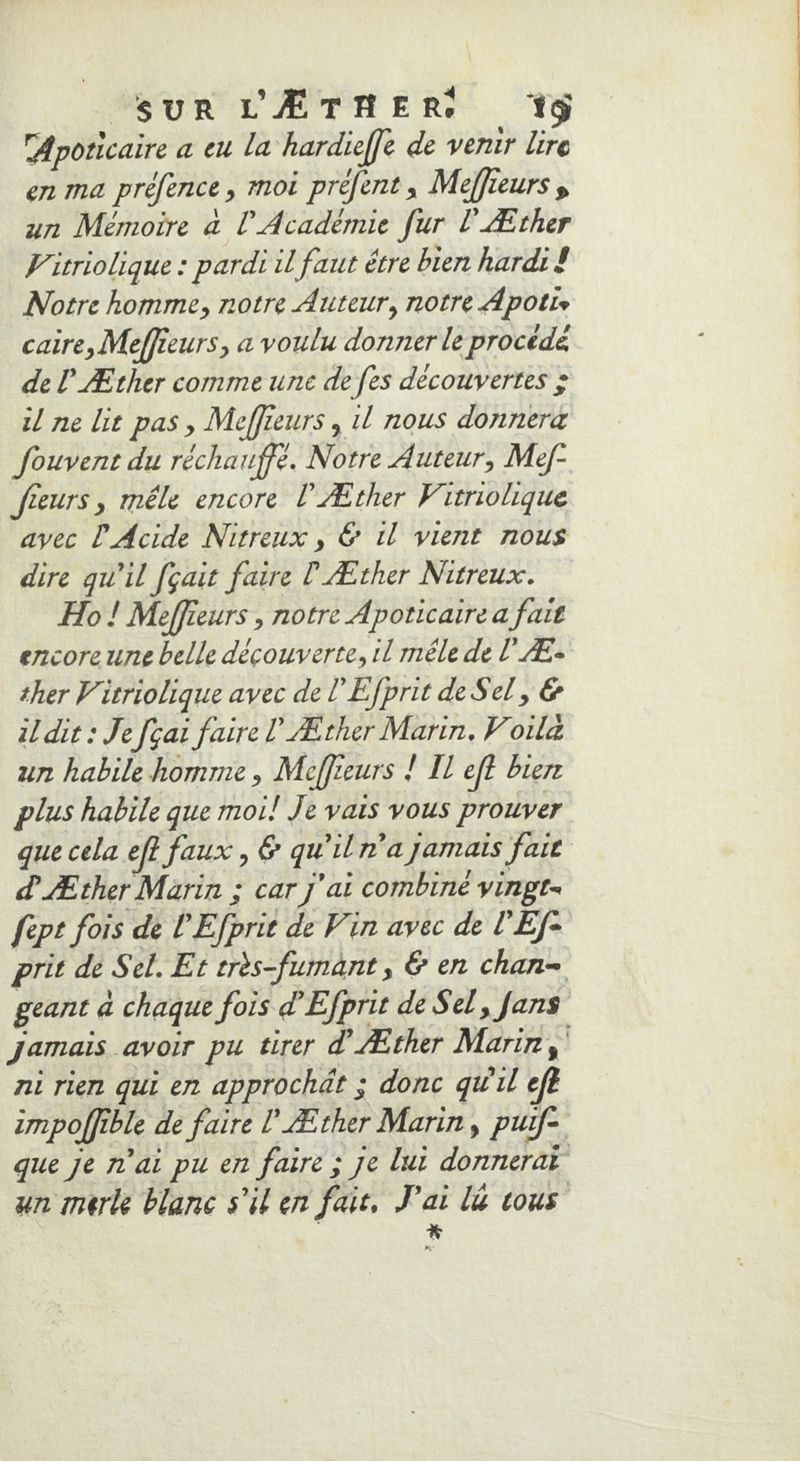 SUR L'ÆTHER. 19
Apoticaire a eu la hardieſſe de venir lire
en ma préſence, moi préſent, Meſſieurs,
un Mémoire à l'Académie ſur l'Æther
Vitriolique : pardi il faut être bien hardi !
Notre homme, notre Auteur, notre Apoti-
caire, Meſſieurs, a voulu donner le procédé
de l'Æther comme une de ſes découvertes ;
il ne lit pas, Meſſieurs, il nous donnera
ſouvent du réchauffé. Notre Auteur, Meſ-
ſieurs, mêle encore l'Æther Vitriolique
avec l'Acide Nitreux, & il vient nous
dire qu'il ſçait faire l'Æther Nitreux.
Ho ! Meſſieurs, notre Apoticaire a fait
encore une belle découverte, il mêle de l'Æ-
ther Vitriolique avec de l'Eſprit de Sel, &
il dit : Je ſçai faire l'Æther Marin. Voilà
un habile homme, Meſſieurs ! Il eſt bien
plus habile que moi! Je vais vous prouver
que cela eſt faux, & qu'il n'a jamais fait
d'Æther Marin ; car j'ai combiné vingt-
ſept fois de l'Eſprit de Vin avec de l'Eſ-
prit de Sel. Et très-fumant, & en chan-
geant à chaque fois d'Eſprit de Sel, ſans
jamais avoir pu tirer d'Æther Marin,
ni rien qui en approchât ; donc qu'il eſt
impoſſible de faire l'Æther Marin, puiſ-
que je n'ai pu en faire ; je lui donnerai
un merle blanc s'il en fait. J'ai lû tous
*